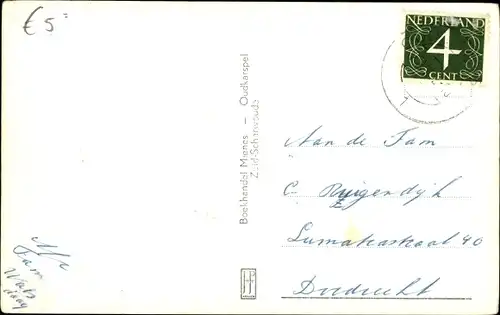 € 5=
NEDERLAND
4
CENT
Boekhandel Mienes — Oudkarspel
Zuid-Scharwoude
Aan de Fam
C. Ruigendijk
Sumatrastraat 40
Dordrecht
Afz
Fam